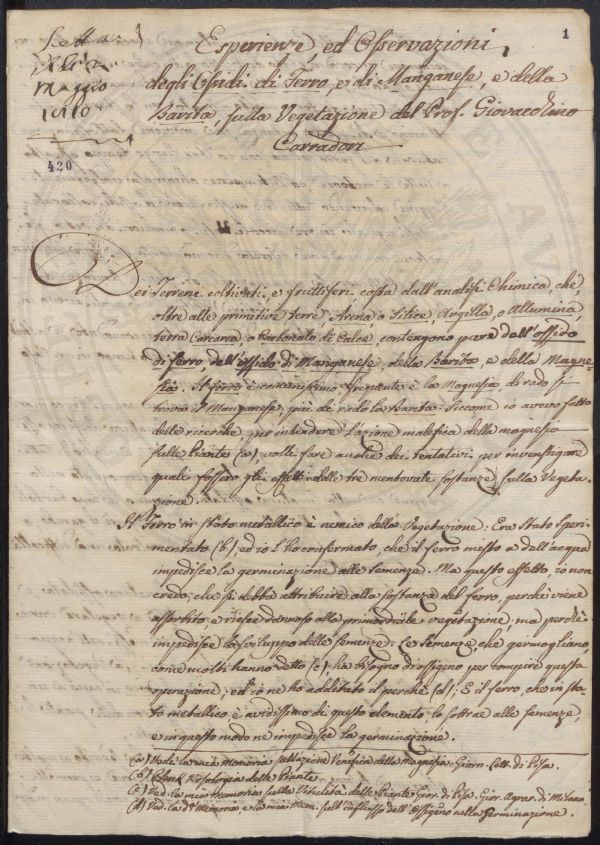 Letta
Maggio
1810
420
1
Esperienze, ed Osservazioni
degli Ossidi di Ferro, e di Manganese, e della
Barita, sulla Vegetazione del Prof. Giovacchino
Carradori
Dei Terreni coltivati, e fruttiferi costa dall'analisi Chimica, che,
oltre alle primitive terre Arena, o Silice, Argilla, o Allumina,
terra Carcarea, o Carbonato di Calce, contengono pure dell'ossido
di ferro, dell'ossido di Manganese, della Barita, e della Magne-
sia. Il ferro è comunissimo, frequente è la Magnesia, di rado si
trova il Manganese, più di rado la Barita. Siccome io avevo fatto
delle ricerche per intendere l'azione malefica della magnesia
sulle Piante (a), volli fare anche dei tentativi per investigare
quali fossero gli effetti delle tre mentovate sostanze sulla Vegeta-
zione.
Il Ferro in stato metallico è nemico della Vegetazione: Era stato speri-
mentato (b), ed io l'ho confermato, che il ferro misto a dell'acqua
impedisce la germinazione alle semenze. Ma questo effetto, io non
credo, che si debba attribuire alla sostanza del ferro, perchè viene
assorbito, e riesce dannoso alla primordiale vegetazione; ma perchè
impedisce lo sviluppo delle semenze. Le semenze, che germogliano,
come molti hanno detto (c), ha bisogno d'ossigeno per compire questa
operazione; ed io ne ho additato il perchè (d); E il ferro, che in sta-
to metallico, è avidissimo di questo elemento, lo sottrae alle semenze,
e in questo modo ne impedisce la germinazione.
(a) Vedi la mia Memoria sull'azione Venefica della Magnesia. Giorn. Lett. di Pisa.
(b) Plenk Nosologia delle Piante
(c) Ved. la mia Memoria sulla Vitalità delle Piante Gior. di Pisa. Gior. Agrar. di Milano
(d) Ved. la Dª Memoria e la mia Mem. sull'influsso dell'Ossigeno nella Germinazione.